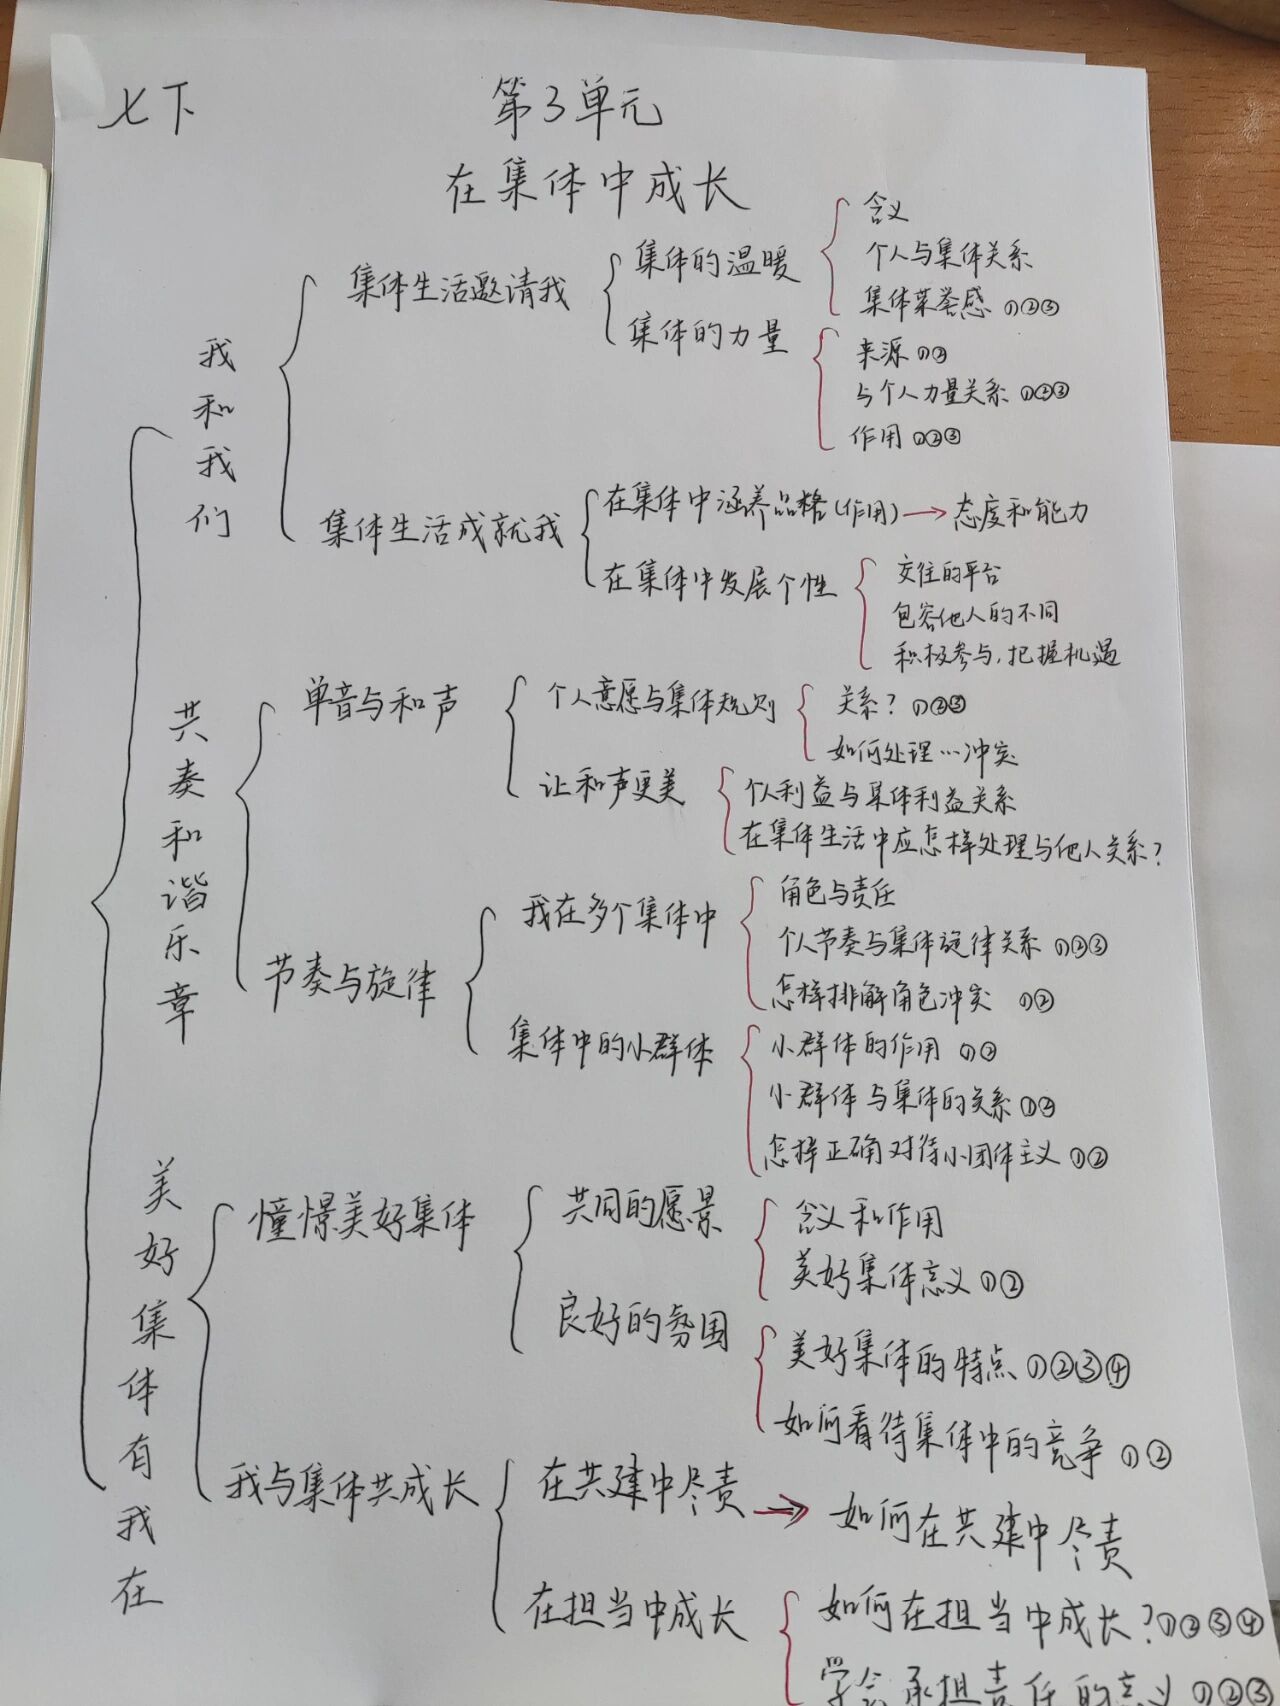 七下
第3单元
在集体中成长
我和我们
集体生活邀请我
集体的温暖
含义
个人与集体关系
集体荣誉感①②③
集体的力量
来源①②
与个人力量关系①②③
作用①②③
集体生活成就我
在集体中涵养品格(作用)→态度和能力
在集体中发展个性
交往的平台
包容他人的不同
积极参与,把握机遇
共奏和谐乐章
单音与和声
个人意愿与集体规则
关系?①②③
如何处理…冲突
让和声更美
个人利益与集体利益关系
在集体生活中应怎样处理与他人关系?
节奏与旋律
我在多个集体中
角色与责任
个人节奏与集体旋律关系①②③
怎样排解角色冲突①②
集体中的小群体
小群体的作用①②
小群体与集体的关系①②
怎样正确对待小团体主义①②
美好集体有我在
憧憬美好集体
共同的愿景
含义和作用
美好集体意义①②
良好的氛围
美好集体的特点①②③④
如何看待集体中的竞争①②
我与集体共成长
在共建中尽责→如何在共建中尽责
在担当中成长
如何在担当中成长?①②③④
学会承担责任的意义①②③